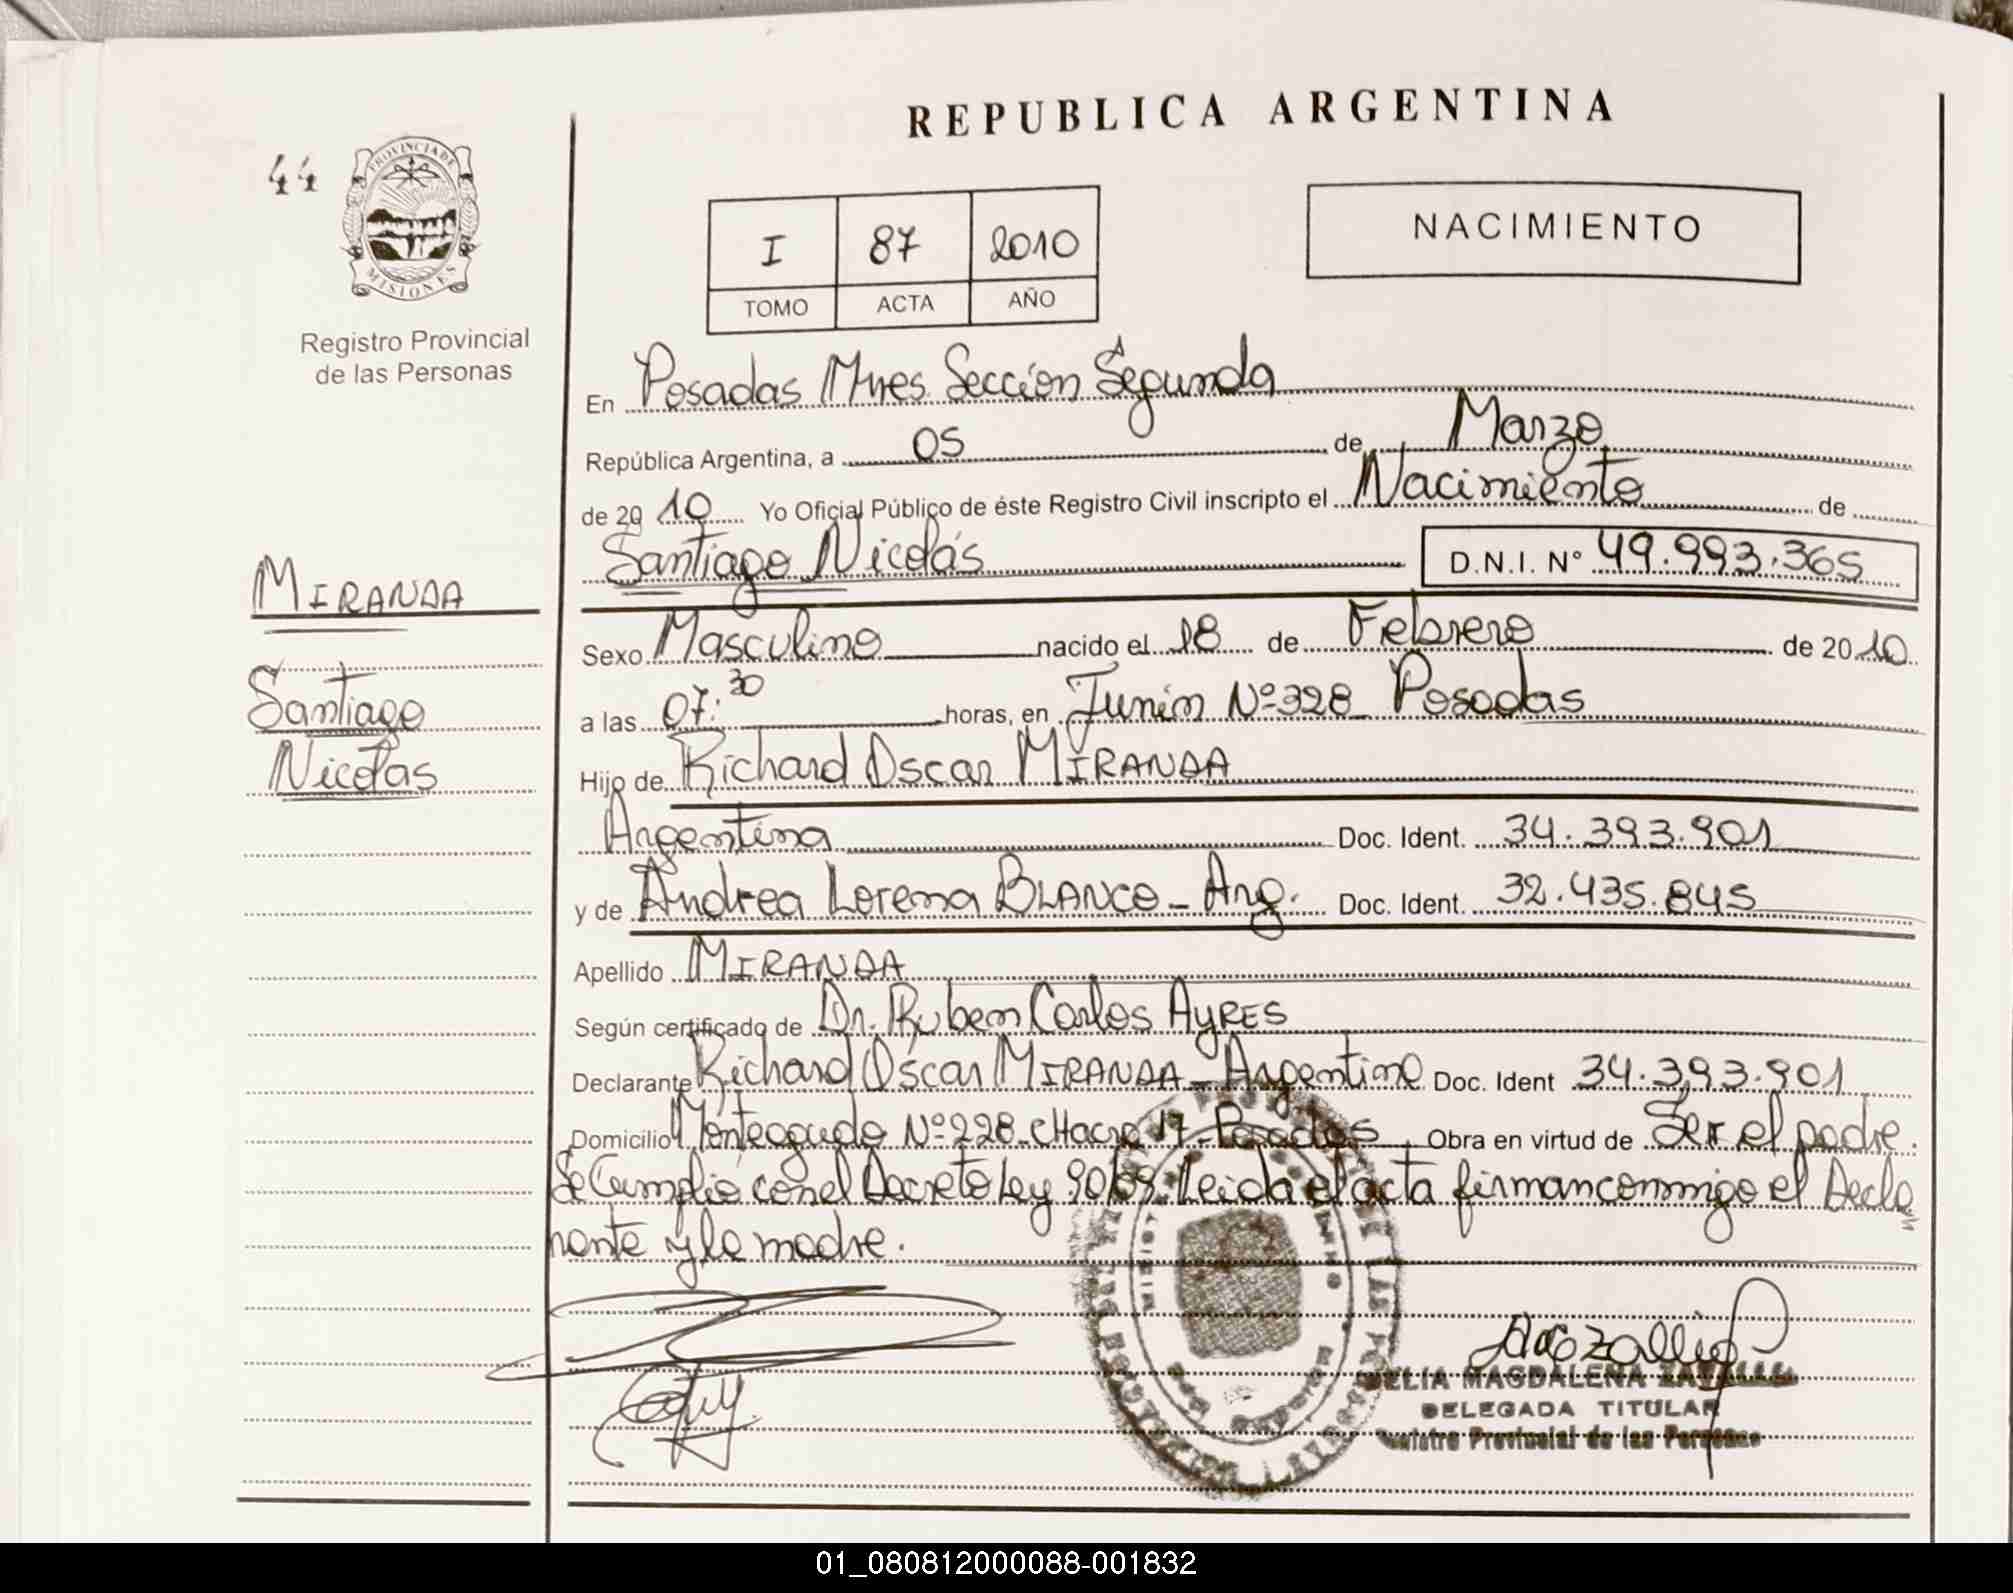 REPUBLICA ARGENTINA
44
PROVINCIA DE
MISIONES
Registro Provincial
de las Personas
I 87 2010
TOMO ACTA AÑO
NACIMIENTO
En Posadas Mnes. Sección Segunda
República Argentina, a 05 de Marzo
de 2010 Yo Oficial Público de éste Registro Civil inscripto el Nacimiento de
Santiago Nicolás D.N.I. Nº 49.993.365
MIRANDA
Santiago
Nicolas
Sexo Masculino nacido el 18 de Febrero de 2010
a las 07:30 horas, en Junín Nº 328 Posadas
Hijo de Richard Oscar MIRANDA
Argentina Doc. Ident. 34.393.901
y de Andrea Lorena BLANCO - Arg. Doc. Ident. 32.435.845
Apellido MIRANDA
Según certificado de Dr. Ruben Carlos AYRES
Declarante Richard Oscar MIRANDA - Argentino Doc. Ident 34.393.901
Domicilio Monteagudo Nº 228 - CHacra 17 - Posadas Obra en virtud de Ser el padre.
Se Cumplió con el Decreto Ley 90/69. Leida el acta firman conmigo el Decla
rante y la madre.
MAGDALENA
DELEGADA TITULAR
Registro Provincial de las Personas
01_080812000088-001832